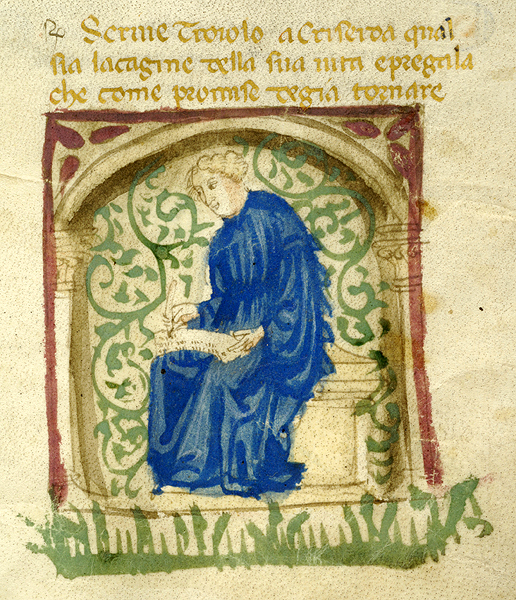 Scriue Troiolo a Criseida qual
sia la cagine della sua uita e pregala
che come promise degia tornare